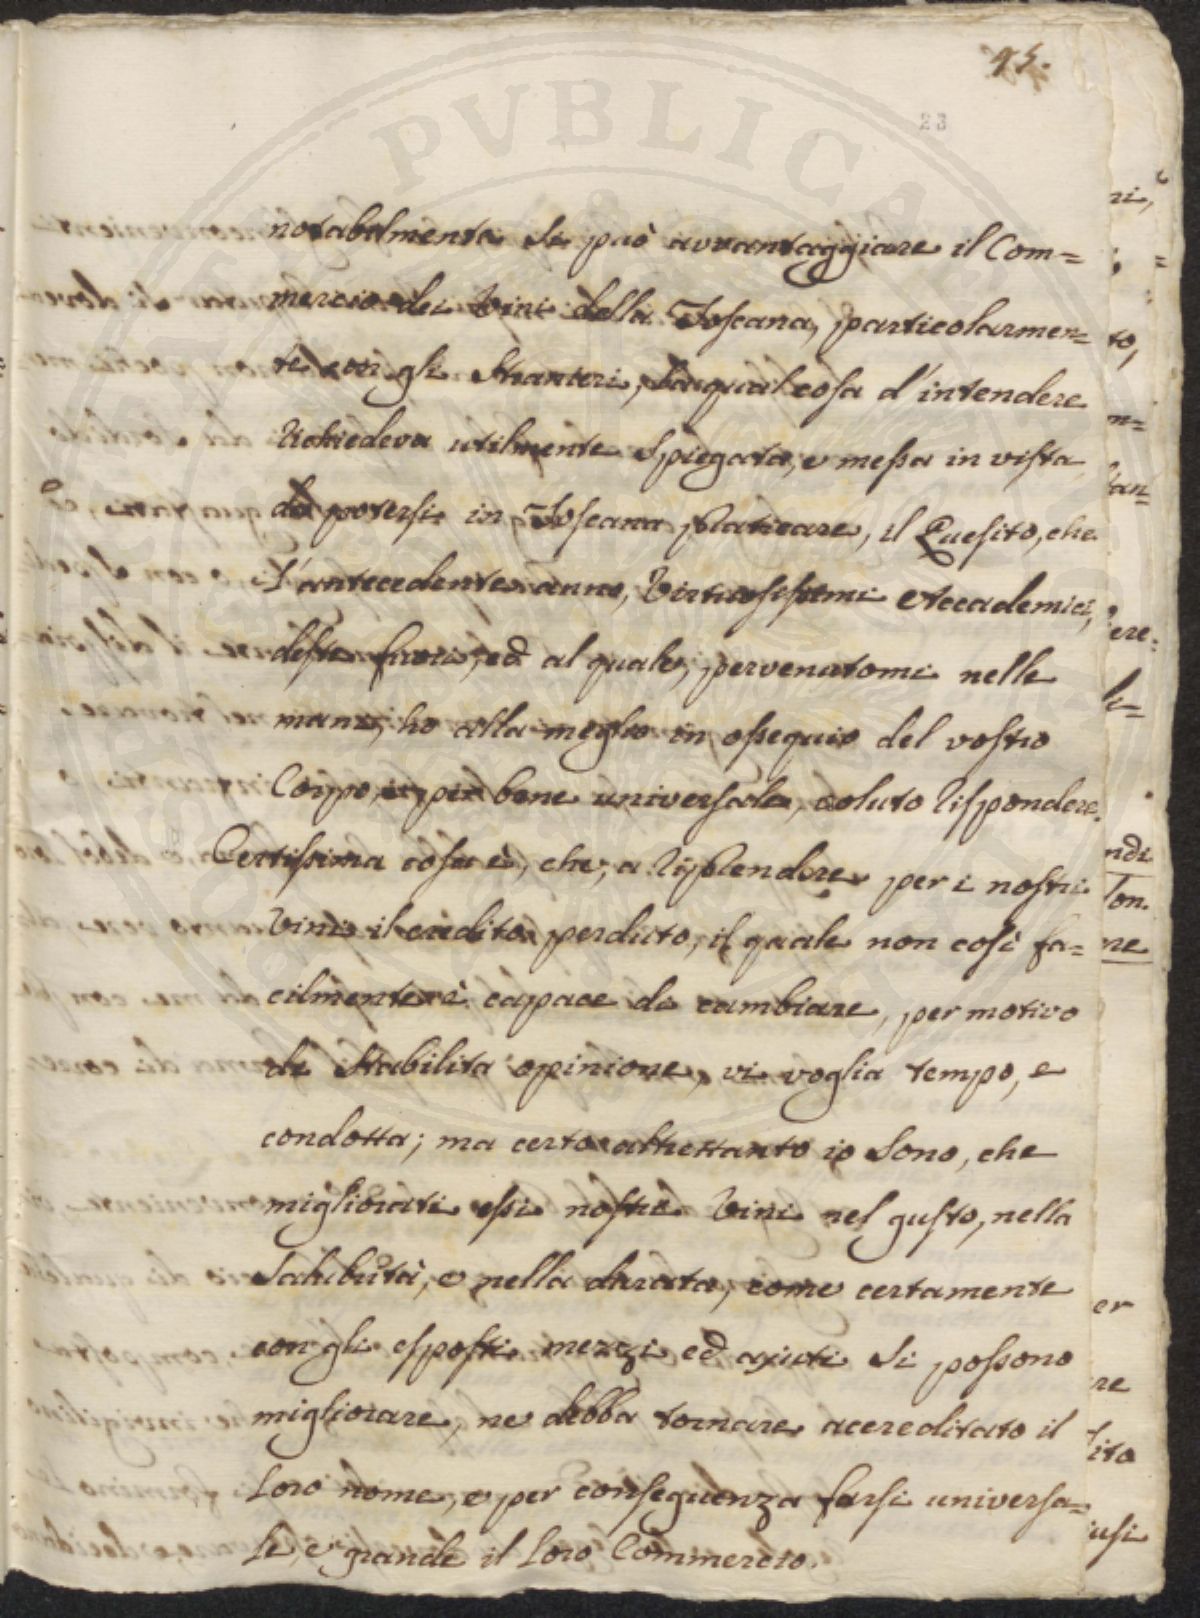 45.
23
notabilmente si può avvantaggiare il Com=
mercio dei Vini della Toscana, particolarmen=
te con gli Stranieri, la qual cosa d'intendere
richiedeva utilmente spiegata, e messa in vista
di potersi in Toscana platicare, il Quesito, che
l'antecedente anno, Virtuosissimi Accademici,
deste fuori, ed al quale, pervenutomi nelle
mani, ho alla meglio in ossequio del vostro
Corpo, e per bene universale, voluto rispondere.
Certissima cosa è, che, a risplendere per i nostri
Vini il credito perduto, il quale non così fa=
cilmente è capace di cambiare, per motivo
di stabilita opinione, vi voglia tempo, e
condotta; ma certo altrettanto io sono, che
migliorati essi nostri Vini nel gusto, nella
salubrità, e nella durata, come certamente
con gli esposti mezzi ed ajuti si possono
migliorare, ne debba tornare accreditato il
loro nome, e per conseguenza farsi universa=
le, e grande il loro Commercio.